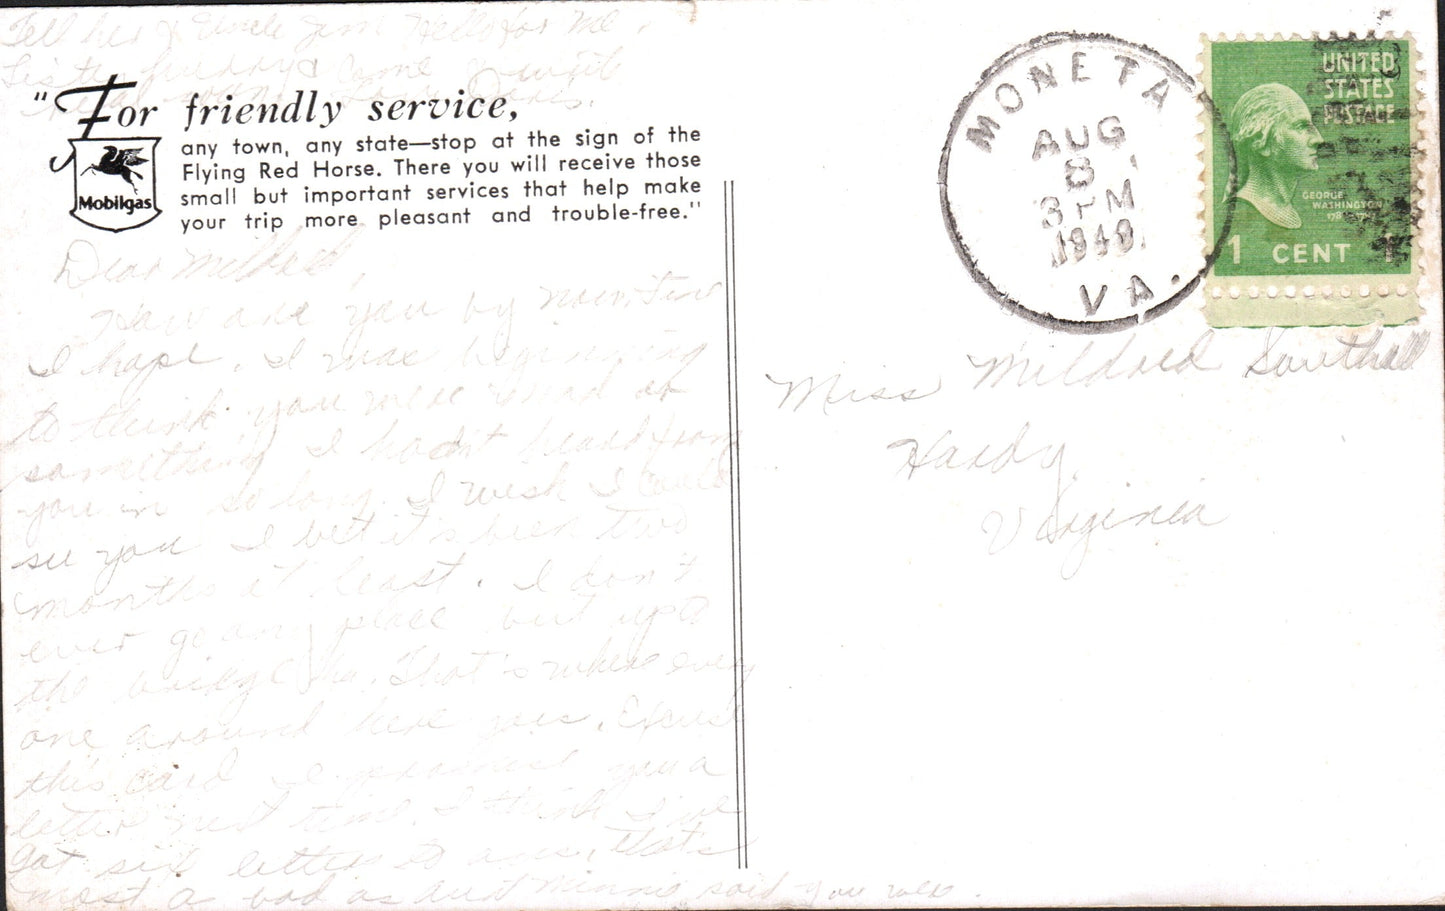 Tell her & Uncle Jim Hello for me.
come & write
real soon. Love
"For friendly service,
any town, any state—stop at the sign of the
Flying Red Horse. There you will receive those
small but important services that help make
your trip more pleasant and trouble-free."
Mobilgas
MONETA
AUG
8
3 PM
1949
VA.
UNITED
STATES
POSTAGE
GEORGE
WASHINGTON
1 CENT 1
Dear Mildred,
How are you by now. Fine
I hope. I was beginning
to think you were dead or
something I hadn't heard from
you in so long. I wish I could
see you I bet it's been two
months at least. I don't
ever go any place but up to
the bridge. That's where every
one around here goes. Excuse
this card I promise you a
letter next time. I think I've
got six letters to ans, that's
most as bad as Aunt Minnie said you were.
Miss Mildred Southall
Hardy
Virginia